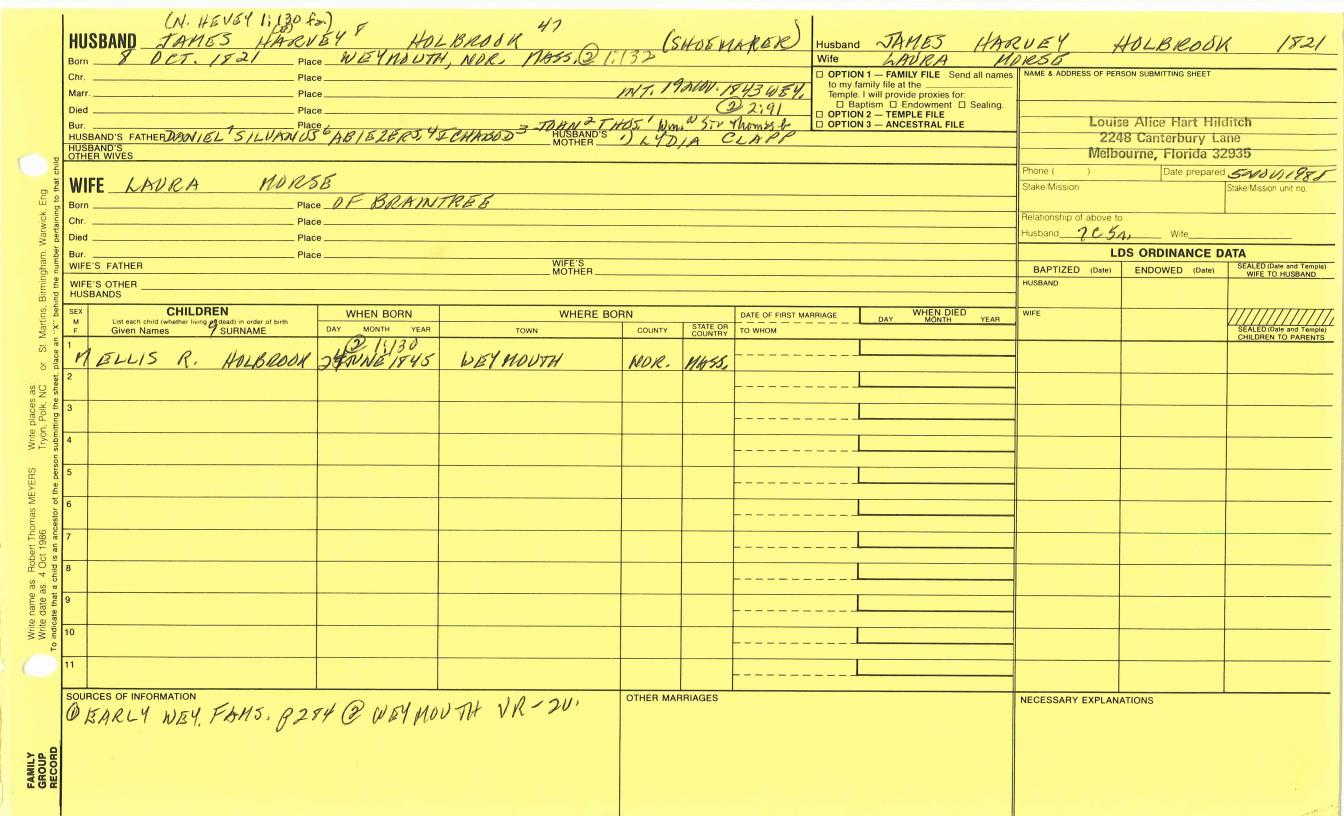 (N. HEVEY 1:130 fa.)
HUSBAND JAMES HARVEY 8 HOLBROOK 47 (SHOEMAKER)
Born 8 OCT. 1821 Place WEYMOUTH, NOR. MASS. ② 1:132
Chr. Place
Marr. Place INT. 19 NOV. 1843 WEY.
Died Place ② 2:91
Bur. Place
HUSBAND'S FATHER DANIEL 7 SILVANUS 6 ABIEZER 5, 4 ICHABOD 3 JOHN 2 THOS. 1 Wm. Sir Thomas
HUSBAND'S MOTHER LYDIA CLAPP
HUSBAND'S OTHER WIVES
WIFE LAURA MORSE
Born Place OF BRAINTREE
Chr. Place
Died Place
Bur. Place
WIFE'S FATHER WIFE'S MOTHER
WIFE'S OTHER HUSBANDS
Husband JAMES HARVEY HOLBROOK 1821
Wife LAURA MORSE
☐ OPTION 1 — FAMILY FILE Send all names
to my family file at the
Temple. I will provide proxies for:
☐ Baptism ☐ Endowment ☐ Sealing.
☐ OPTION 2 — TEMPLE FILE
☐ OPTION 3 — ANCESTRAL FILE
NAME & ADDRESS OF PERSON SUBMITTING SHEET
Louise Alice Hart Hilditch
2248 Canterbury Lane
Melbourne, Florida 32935
Phone ( ) Date prepared 5 NOV 1988
Stake/Mission Stake/Mission unit no.
Relationship of above to
Husband 7C5R. Wife
LDS ORDINANCE DATA
BAPTIZED (Date) ENDOWED (Date) SEALED (Date and Temple) WIFE TO HUSBAND
HUSBAND
WIFE
SEALED (Date and Temple) CHILDREN TO PARENTS
SEX M F
CHILDREN
List each child (whether living or dead) in order of birth
Given Names 9 SURNAME
WHEN BORN
DAY MONTH YEAR
WHERE BORN
TOWN COUNTY STATE OR COUNTRY
DATE OF FIRST MARRIAGE
TO WHOM
WHEN DIED
DAY MONTH YEAR
② 1:130
1 M ELLIS R. HOLBROOK 24 JUNE 1845 WEYMOUTH NOR. MASS.
2
3
4
5
6
7
8
9
10
11
SOURCES OF INFORMATION
① EARLY WEY. FAMS. p284 ② WEYMOUTH VR - 2V.
OTHER MARRIAGES
NECESSARY EXPLANATIONS
Write name as: Robert Thomas MEYERS Write places as: Tryon, Polk, NC or St. Martins, Birmingham, Warwick, Eng
Write date as: 4 Oct 1986
To indicate that a child is an ancestor of the person submitting the sheet, place an "X" behind the number pertaining to that child
FAMILY
GROUP
RECORD